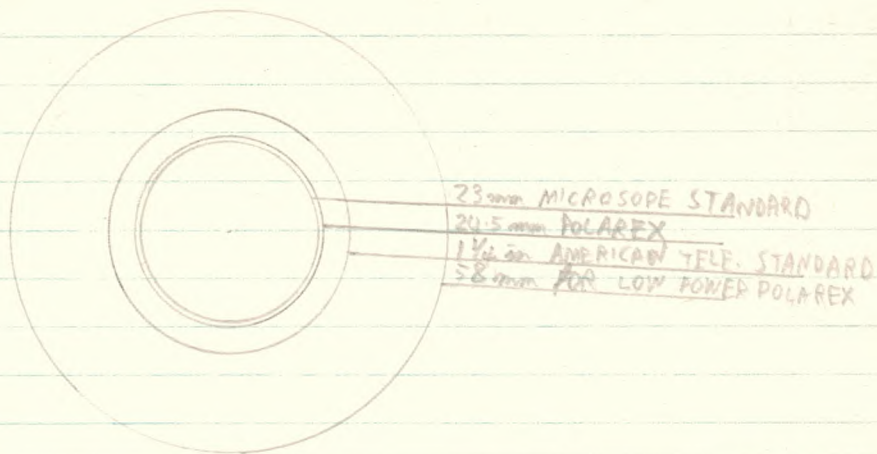 23 mm MICROSOPE STANDARD
24.5 mm POLAREX
1 1/4 in AMERICAN TELE. STANDARD
58 mm FOR LOW POWER POLAREX